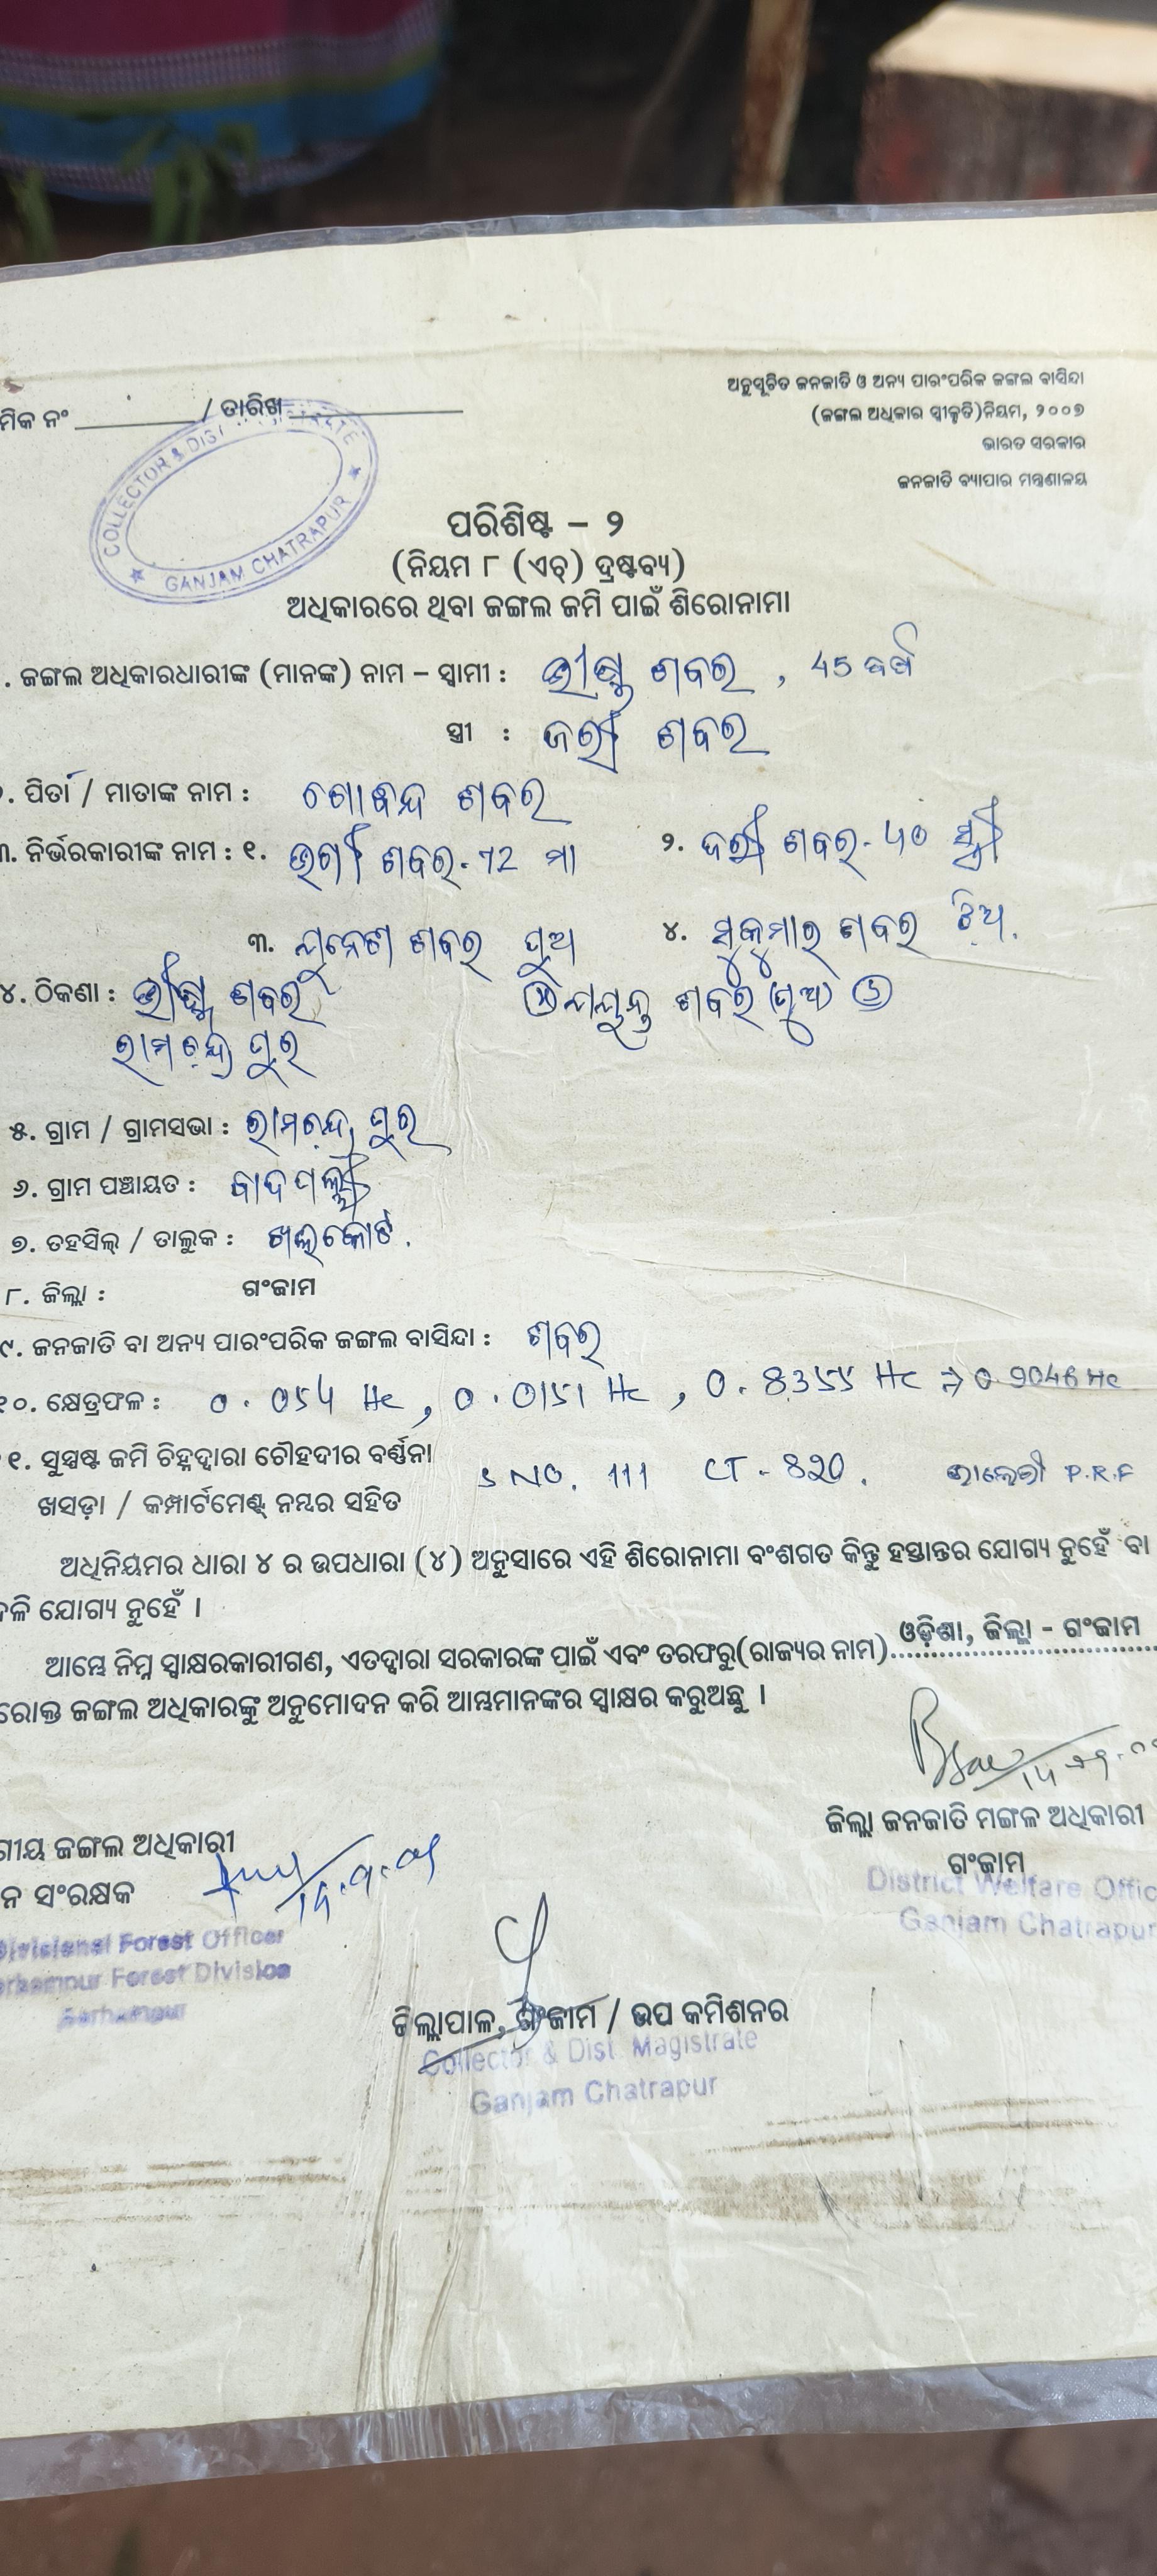 ମିକ ନଂ / ତାରିଖ
ଅନୁସୂଚିତ ଜନଜାତି ଓ ଅନ୍ୟ ପାରଂପରିକ ଜଙ୍ଗଲ ବାସିନ୍ଦା
(ଜଙ୍ଗଲ ଅଧିକାର ସ୍ବୀକୃତି)ନିୟମ, ୨୦୦୭
ଭାରତ ସରକାର
ଜନଜାତି ବ୍ୟାପାର ମନ୍ତ୍ରଣାଳୟ
COLLECTOR & DIST
GANJAM CHATRAPUR
ପରିଶିଷ୍ଟ – ୨
(ନିୟମ ୮ (ଏଚ୍) ଦ୍ରଷ୍ଟବ୍ୟ)
ଅଧିକାରରେ ଥିବା ଜଙ୍ଗଲ ଜମି ପାଇଁ ଶିରୋନାମା
. ଜଙ୍ଗଲ ଅଧିକାରଧାରୀଙ୍କ (ମାନଙ୍କ) ନାମ – ସ୍ବାମୀ : ଶବର , 45 ବର୍ଷ
ସ୍ତ୍ରୀ : ଶବର
. ପିତା / ମାତାଙ୍କ ନାମ : ଗୋବିନ୍ଦ ଶବର
୩. ନିର୍ଭରକାରୀଙ୍କ ନାମ : ୧. ଶବର - 72 ମା ୨. ଶବର - ୪୦ ସ୍ତ୍ରୀ
୩. ଶବର ପୁଅ ୪. ସୁକୁମାର ଶବର ଝିଅ.
୪. ଠିକଣା : ଶବର ଶବର (ପୁଅ) ୬
ରାମଚନ୍ଦ୍ର ପୁର
୫. ଗ୍ରାମ / ଗ୍ରାମସଭା : ରାମଚନ୍ଦ୍ର ପୁର
୬. ଗ୍ରାମ ପଞ୍ଚାୟତ :
୭. ତହସିଲ୍ / ତାଲୁକ : ଖଲିକୋଟ.
୮. ଜିଲ୍ଲା : ଗଂଜାମ
୯. ଜନଜାତି ବା ଅନ୍ୟ ପାରଂପରିକ ଜଙ୍ଗଲ ବାସିନ୍ଦା : ଶବର
୧୦. କ୍ଷେତ୍ରଫଳ : Hc , Hc , Hc Hc
୧. ସୁସ୍ପଷ୍ଟ ଜମି ଚିହ୍ନଦ୍ୱାରା ଚୌହଦୀର ବର୍ଣ୍ଣନା S NO. 111 CT - P.R.F
ଖସଡ଼ା / କମ୍ପାର୍ଟମେଣ୍ଟ୍ ନମ୍ବର ସହିତ
ଅଧିନିୟମର ଧାରା ୪ ର ଉପଧାରା (୪) ଅନୁସାରେ ଏହି ଶିରୋନାମା ବଂଶଗତ କିନ୍ତୁ ହସ୍ତାନ୍ତର ଯୋଗ୍ୟ ନୁହେଁ ବା
ଳି ଯୋଗ୍ୟ ନୁହେଁ ।
ଆମ୍ଭେ ନିମ୍ନ ସ୍ୱାକ୍ଷରକାରୀଗଣ, ଏତଦ୍ୱାରା ସରକାରଙ୍କ ପାଇଁ ଏବଂ ତରଫରୁ(ରାଜ୍ୟର ନାମ) ଓଡ଼ିଶା, ଜିଲ୍ଲା - ଗଂଜାମ
ରୋକ୍ତ ଜଙ୍ଗଲ ଅଧିକାରଙ୍କୁ ଅନୁମୋଦନ କରି ଆମ୍ଭମାନଙ୍କର ସ୍ୱାକ୍ଷର କରୁଅଛୁ ।
ଜିଲ୍ଲା ଜନଜାତି ମଙ୍ଗଳ ଅଧିକାରୀ
ଗଂଜାମ
District Welfare Offic
Ganjam Chatrapur
ଗୀୟ ଜଙ୍ଗଲ ଅଧିକାରୀ
ନ ସଂରକ୍ଷକ
Divisional Forest Officer
erhampur Forest Division
Berhampur
ଜିଲ୍ଲାପାଳ, ଗଂଜାମ / ଉପ କମିଶନର
Collector & Dist. Magistrate
Ganjam Chatrapur